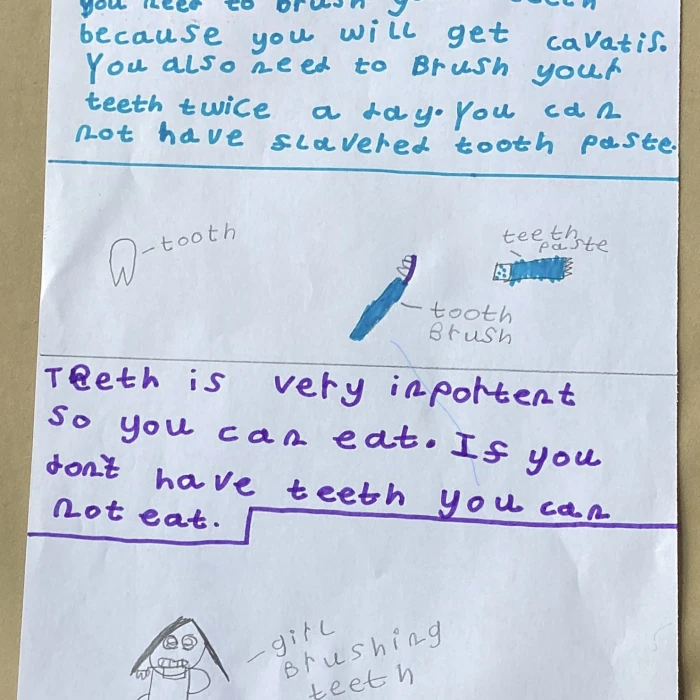 you need to brush your teeth
because you will get cavatis.
You also need to Brush your
teeth twice a day. You can
not have slavered tooth paste.
tooth
teeth
paste
tooth
Brush
Teeth is very inportent
so you can eat. If you
don't have teeth you can
not eat.
girl
Brushing
teeth